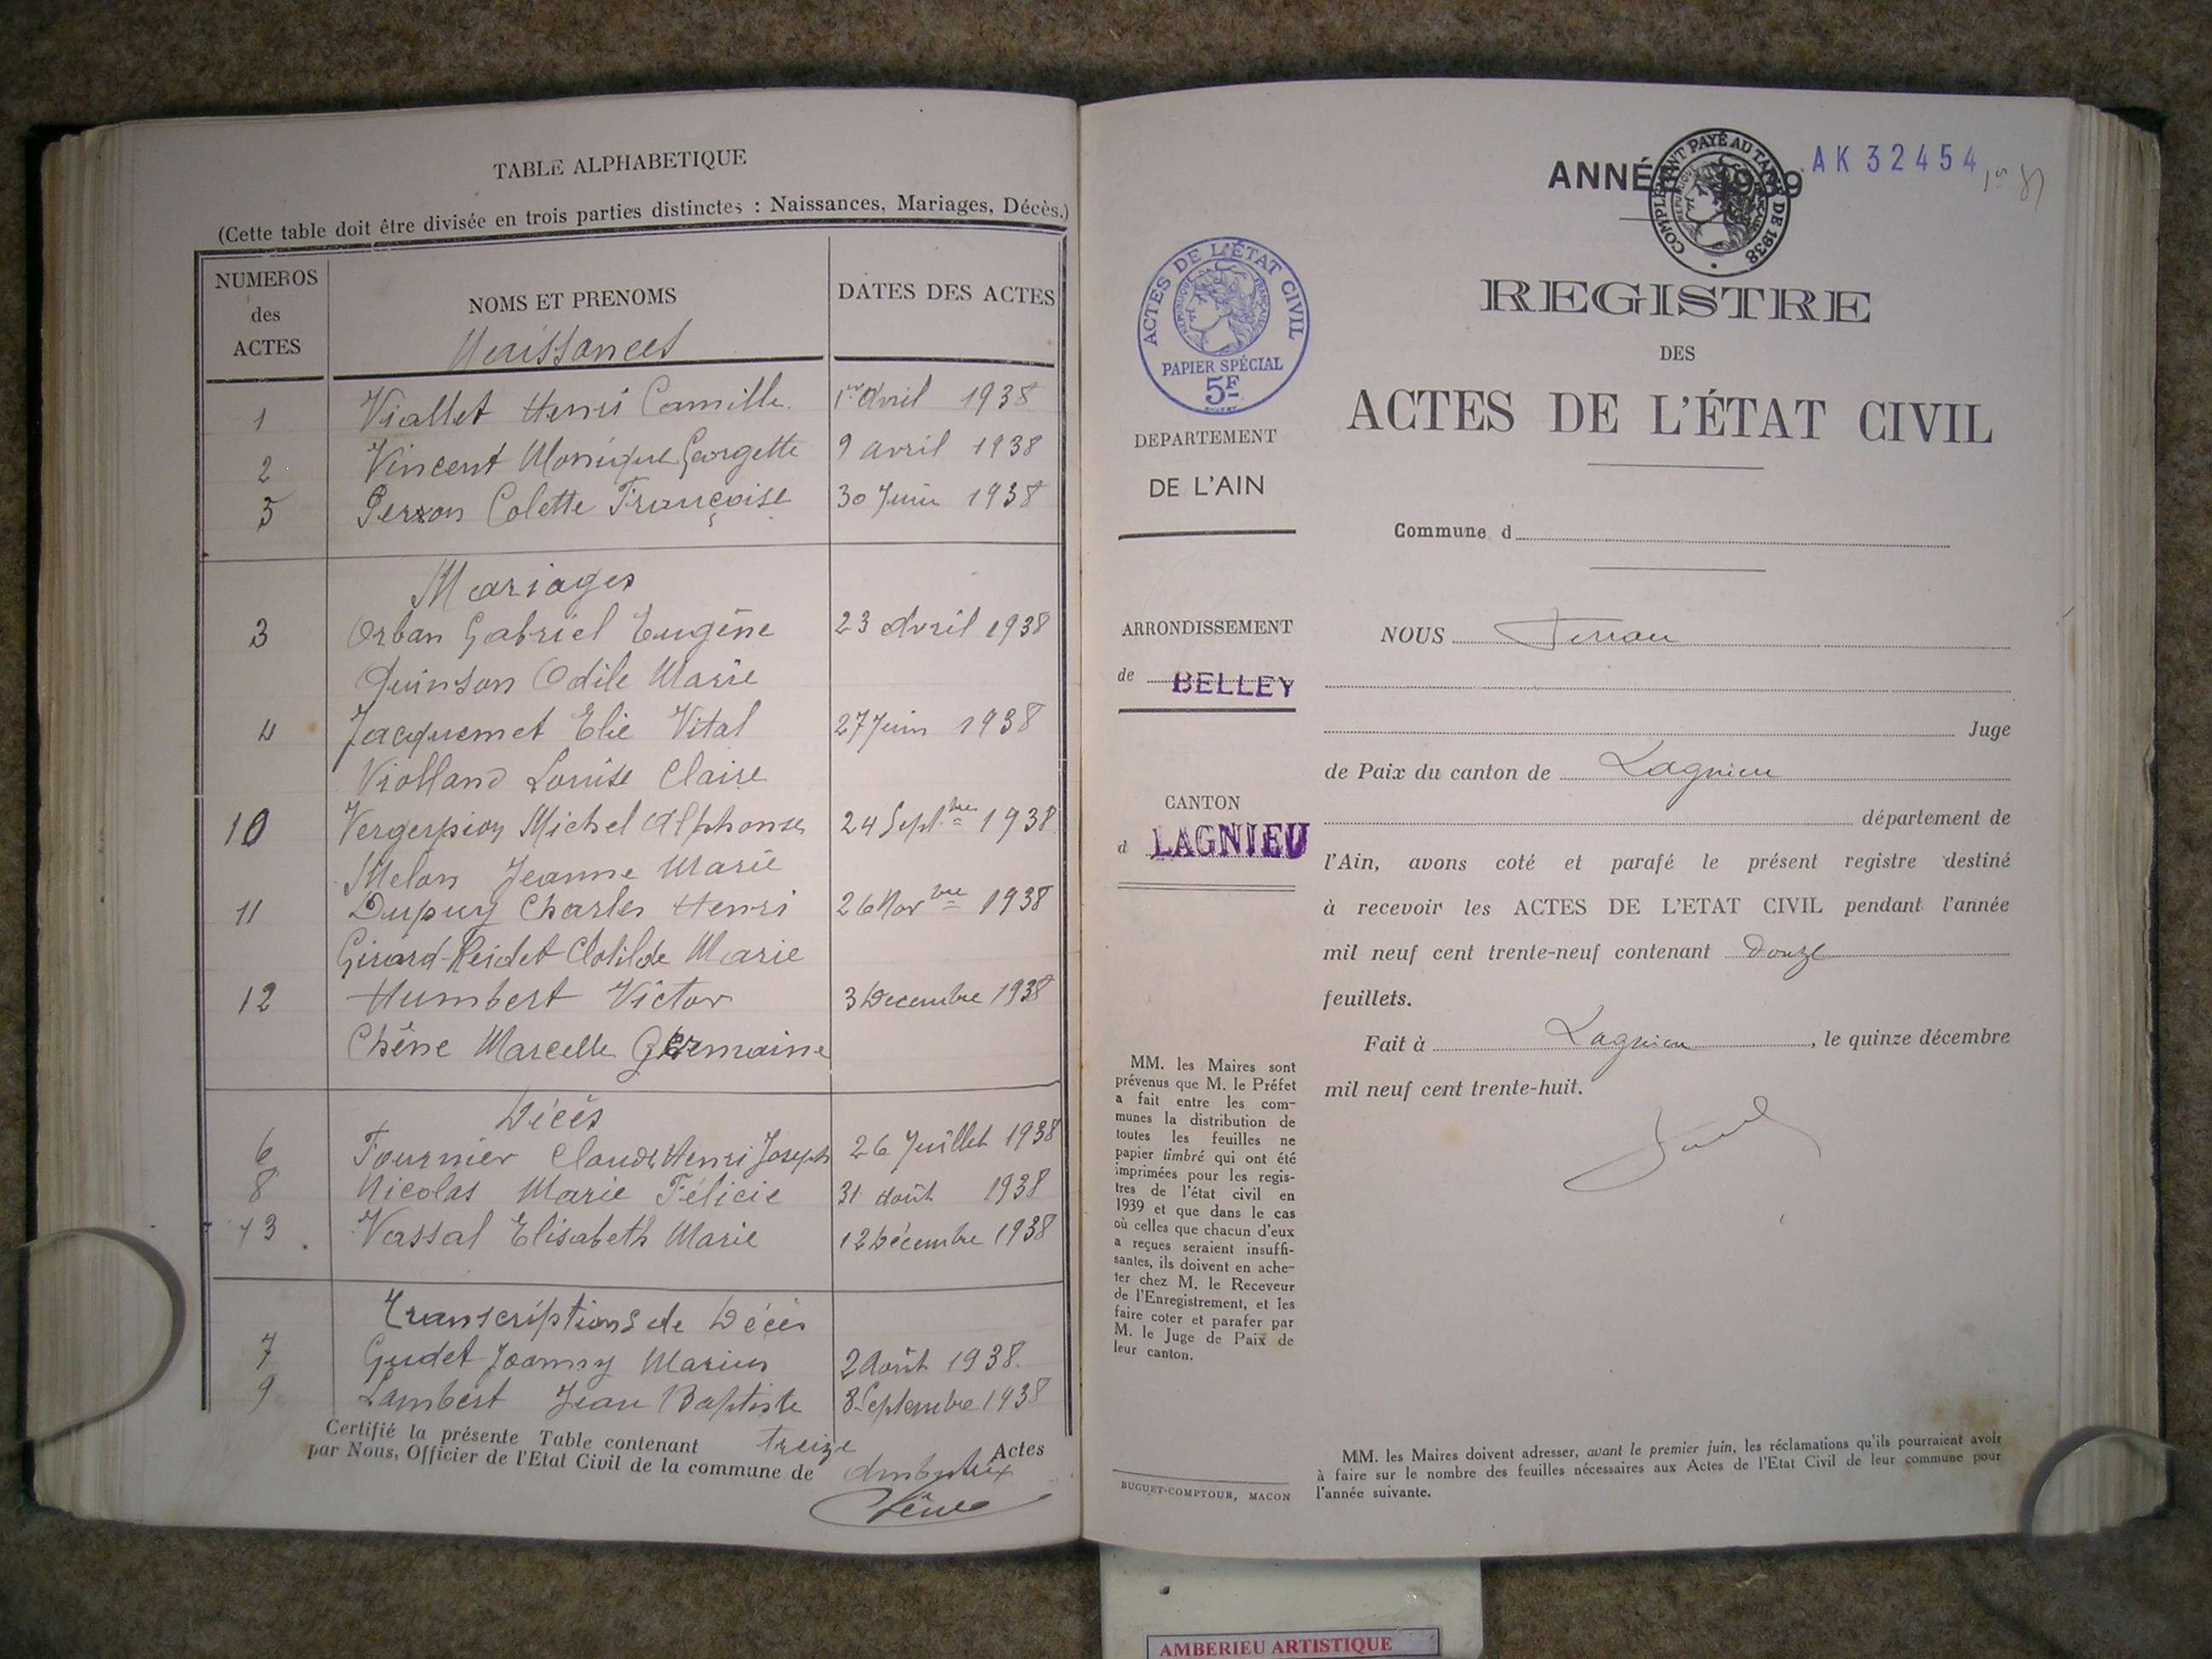 TABLE ALPHABETIQUE
(Cette table doit être divisée en trois parties distinctes : Naissances, Mariages, Décès.)
NUMEROS des ACTES
NOMS ET PRENOMS
DATES DES ACTES
Naissances
1 Viallet Henri Camille 1er Avril 1938
2 Vincent Monique Georgette 9 avril 1938
5 Perron Colette Françoise 30 Juin 1938
Mariages
3 Orban Gabriel Eugène 23 Avril 1938
Quinson Odile Marie
4 Jacquemet Elie Vital 27 Juin 1938
Violland Louise Claire
10 Vergerpion Michel Alphonse 24 Septbre 1938
Melon Jeanne Marie
11 Dupuy Charles Henri 26 Novbre 1938
Girard-Reidet Clotilde Marie
12 Humbert Victor 3 Decembre 1938
Chêne Marcelle Germaine
Décés
6 Fournier Claude Henri Joseph 26 Juillet 1938
8 Nicolas Marie Félicie 31 Août 1938
13 Vassal Elisabeth Marie 12 Décembre 1938
Transcriptions de Décés
7 Gudet Joanny Marius 2 Août 1938
9 Lambert Jean Baptiste 8 Septembre 1938
Certifié la présente Table contenant treize Actes
par Nous, Officier de l'Etat Civil de la commune de Ambutrix
Chêne
ANNÉE 1939
AK 32454
COMPLÉMENT PAYÉ AU TARIF DE 1938
REPUBLIQUE FRANÇAISE
ACTES DE L'ÉTAT CIVIL
REPUBLIQUE FRANÇAISE
PAPIER SPÉCIAL
5F
DEPARTEMENT
DE L'AIN
ARRONDISSEMENT
de BELLEY
CANTON
d LAGNIEU
MM. les Maires sont
prévenus que M. le Préfet
a fait entre les com-
munes la distribution de
toutes les feuilles ne
papier timbré qui ont été
imprimées pour les regis-
tres de l'état civil en
1939 et que dans le cas
où celles que chacun d'eux
a reçues seraient insuffi-
santes, ils doivent en ache-
ter chez M. le Receveur
de l'Enregistrement, et les
faire coter et parafer par
M. le Juge de Paix de
leur canton.
BUGUET-COMPTOUR, MACON
REGISTRE
DES
ACTES DE L'ÉTAT CIVIL
Commune d
NOUS
Juge
de Paix du canton de Lagnieu
département de
l'Ain, avons coté et parafé le présent registre destiné
à recevoir les ACTES DE L'ETAT CIVIL pendant l'année
mil neuf cent trente-neuf contenant Douze
feuillets.
Fait à Lagnieu, le quinze décembre
mil neuf cent trente-huit.
MM. les Maires doivent adresser, avant le premier juin, les réclamations qu'ils pourraient avoir
à faire sur le nombre des feuilles nécessaires aux Actes de l'Etat Civil de leur commune pour
l'année suivante.
AMBERIEU ARTISTIQUE